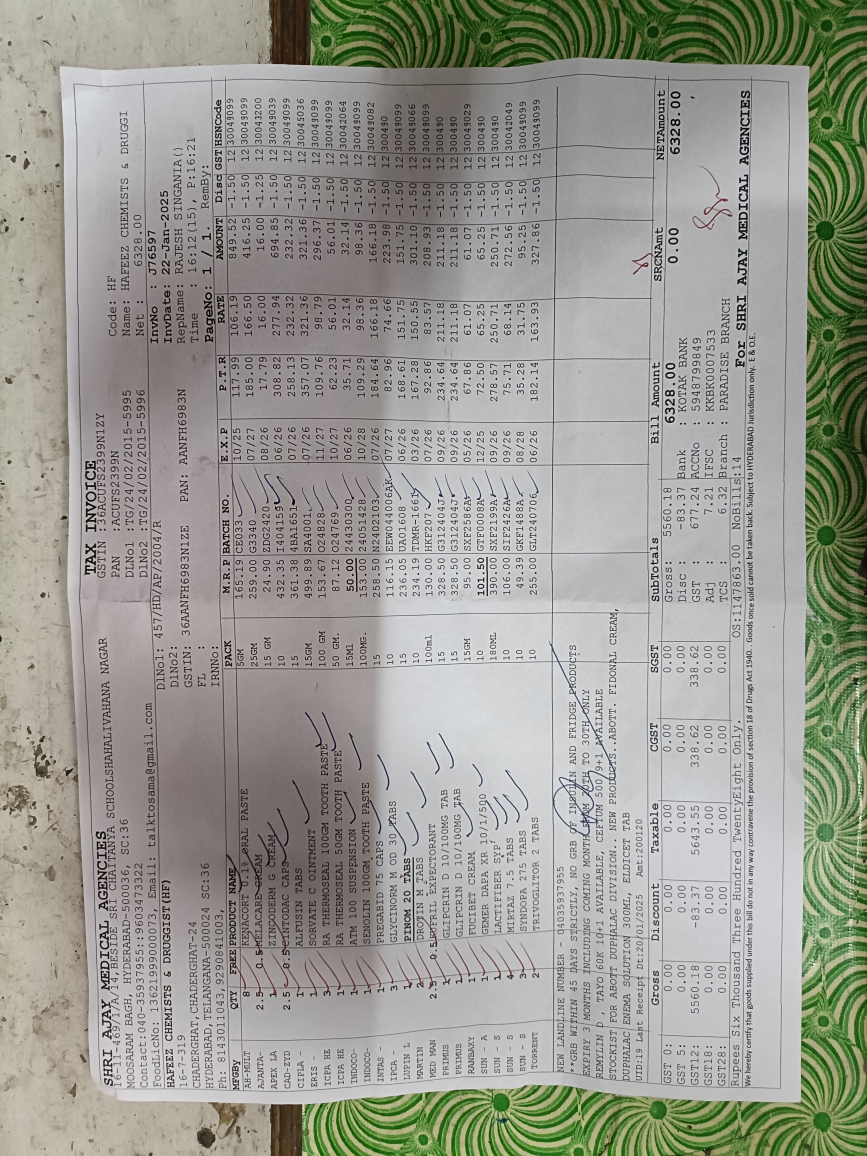 TAX INVOICE
SHRI AJAY MEDICAL AGENCIES
16-11-469/1/A/14,BESIDE SRI CHAITANYA SCHOOLSHAHALIVAHANA NAGAR
MOOSARAM BAGH, HYDERABAD-500036, SC:36
Contact:040-35937955::9603473322
FoodLicNo: 13621999000073, Email: talktosama@gmail.com
GSTIN :36ACUFS2399N1ZY
PAN :ACUFS2399N
DlNo1 :TG/24/02/2015-5995
DlNo2 :TG/24/02/2015-5996
Code: HF
Name: HAFEEZ CHEMISTS & DRUGGI
Net : 6328.00
HAFEEZ CHEMISTS & DRUGGIST(HF)
16-7-319
CHADERGHAT,CHADERGHAT-24
HYDERABAD,TELANGANA-500024 SC:36
Ph: 8143011043,9290841003,
DlNo1: 457/HD/AP/2004/R
DlNo2:
GSTIN: 36AANFH6983N1ZE PAN: AANFH6983N
FL :
IRNNo:
InvNo : J76597
InvDate: 22-Jan-2025
RepName: RAJESH SINGANIA()
Time : 16:12(15), P:16:21
PageNo: 1 / 1. RemBy:
MFGBy QTY FREE PRODUCT NAME PACK M.R.P BATCH NO. E.X.P P.T.R RATE AMOUNT Disc GST HSNCode
AH-MULT 8 KENACORT 0.1% ORAL PASTE 5GM 165.19 CE033 10/25 117.99 106.19 849.52 -1.50 12 30049099
AJANTA- 2.5 0.5 MELACARE CREAM 25GM 259.00 G3340 07/27 185.00 166.50 416.25 -1.50 12 30049099
APEX LA 1 ZINODERM G CREAM 15 GM 24.90 ZDG2420 08/26 17.79 16.00 16.00 -1.25 12 30043200
CAD-ZYD 2.5 0.5 CINTODAC CAPS 10 432.35 I404159 06/26 308.82 277.94 694.85 -1.50 12 30049039
CIPLA - 1 ALFUSIN TABS 15 361.38 4BA1651 07/26 258.13 232.32 232.32 -1.50 12 30049099
ERIS - 1 SORVATE C OINTMENT 15GM 499.89 SA4001 07/26 357.07 321.36 321.36 -1.50 12 30045036
ICPA HE 3 RA THERMOSEAL 100GM TOOTH PASTE 100 GM 153.67 O24825 11/27 109.76 98.79 296.37 -1.50 12 30049099
ICPA HE 1 RA THERMOSEAL 50GM TOOTH PASTE 50 GM. 87.12 O24769 10/27 62.23 56.01 56.01 -1.50 12 30049099
INDOCO- 1 ATM 100 SUSPENSION 15Ml 50.00 24430300 06/26 35.71 32.14 32.14 -1.50 12 30042064
INDOCO- 1 SENOLIN 100GM TOOTH PASTE 100MG. 153.00 24051428 10/28 109.29 98.36 98.36 -1.50 12 30049099
INTAS - 1 PREGABID 75 CAPS 15 258.50 N2402103 07/26 184.64 166.18 166.18 -1.50 12 30049082
IPCA 3 GLYCINORM M OD 30 TABS 10 116.15 EEW044006AK 07/27 82.96 74.66 223.98 -1.50 12 300490
LUPIN L 1 PINOM 20 TABS 15 236.05 UA01608 06/26 168.61 151.75 151.75 -1.50 12 30049099
MARTIN 2 DROTIN M TABS 10 234.19 TDMR-1661 03/26 167.28 150.55 301.10 -1.50 12 30049066
MED MAN 2.5 0.5 BUFRIL EXPECTORANT 100ml 130.00 HKF207 07/26 92.86 83.57 208.93 -1.50 12 30049099
PRIMUS 1 GLIPCRIN D 10/100MG TAB 15 328.50 G312404J 09/26 234.64 211.18 211.18 -1.50 12 300490
PRIMUS 1 GLIPCRIN D 10/100MG TAB 15 328.50 G312404J 09/26 234.64 211.18 211.18 -1.50 12 300490
RANBAXY 1 FUCIBET CREAM 15GM 95.00 SXF2586A 05/26 67.86 61.07 61.07 -1.50 12 30049029
SUN - A 1 GEMER DAPA XR 10/1/500 10 101.50 GTF0008A 12/25 72.50 65.25 65.25 -1.50 12 300490
SUN - S 1 LACTIFIBER SYP 180ML 390.00 SXF2199A 09/26 278.57 250.71 250.71 -1.50 12 300490
SUN - S 4 MIRTAZ 7.5 TABS 10 106.00 SIF2426A 09/26 75.71 68.14 272.56 -1.50 12 30042049
SUN - S 3 SYNDOPA 275 TABS 10 49.39 GKF1488A 08/28 35.28 31.75 95.25 -1.50 12 30049099
TORRENT 2 TRIVOGLITOR 2 TABS 10 255.00 GLT240706 06/26 182.14 163.93 327.86 -1.50 12 30049099
NEW LANDLINE NUMBER 04035937955
**GRB WITHIN 45 DAYS STRICTLY, NO GRB OF INSULIN AND FRIDGE PRODUCTS
EXPIRY 3 MONTHS INCLUDING COMING MONTH FROM 20TH TO 30TH ONLY
REMYLIN D , TAYO 60K 10+1 AVAILABLE, CEFTUM 500 9+1 AVAILABLE
STOCKIST FOR ABOTT DUPHALAC DIVISION.. NEW PRODUCTS..ABOTT. FIDONAL CREAM,
DUPHALAC ENEMA SOLUTION 300ML, ELDICET TAB
UID:19 Last Receipt Dt:20/01/2025 Amt:200120
Gross Discount Taxable CGST SGST SubTotals Bill Amount SRCNAmt NETAmount
GST 0: 0.00 0.00 0.00 0.00 0.00 Gross: 5560.18 6328.00 0.00 6328.00
GST 5: 0.00 0.00 0.00 0.00 0.00 Disc : -83.37 Bank : KOTAK BANK
GST12: 5560.18 -83.37 5643.55 338.62 338.62 GST : 677.24 ACCNo : 5948799849
GST18: 0.00 0.00 0.00 0.00 0.00 Adj : 7.21 IFSC : KKBK0007533
GST28: 0.00 0.00 0.00 0.00 0.00 TCS : 6.32 Branch : PARADISE BRANCH
Rupees Six Thousand Three Hundred TwentyEight Only. OS:1147863.00 NoBills:14 For SHRI AJAY MEDICAL AGENCIES
We hereby certify that goods supplied under this bill do not in any way contravene the provision of section 18 of Drugs Act 1940. . Goods once sold cannot be taken back. Subject to HYDERABAD Jurisdiction only. E & O.E.